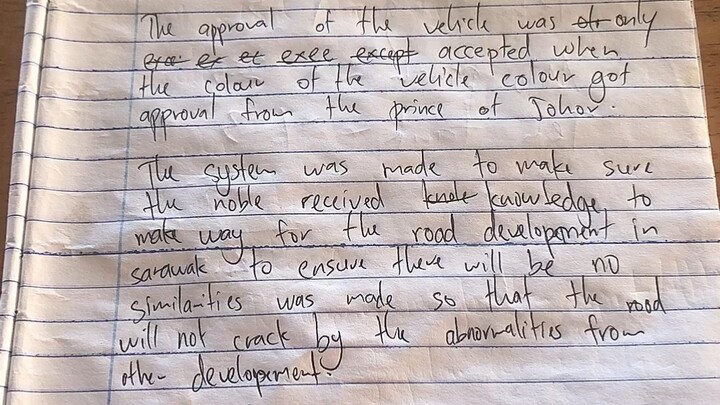 The approval of the vehicle was etr only
exce ex et exee except accepted when
the colour of the vehicle colour got
approval from the prince of Johor.
The system was made to make sure
the noble received knole knowledge to
make way for the road developement in
sarawak to ensure there will be no
similarities was made so that the road
will not crack by the abnormalities from
other developement.